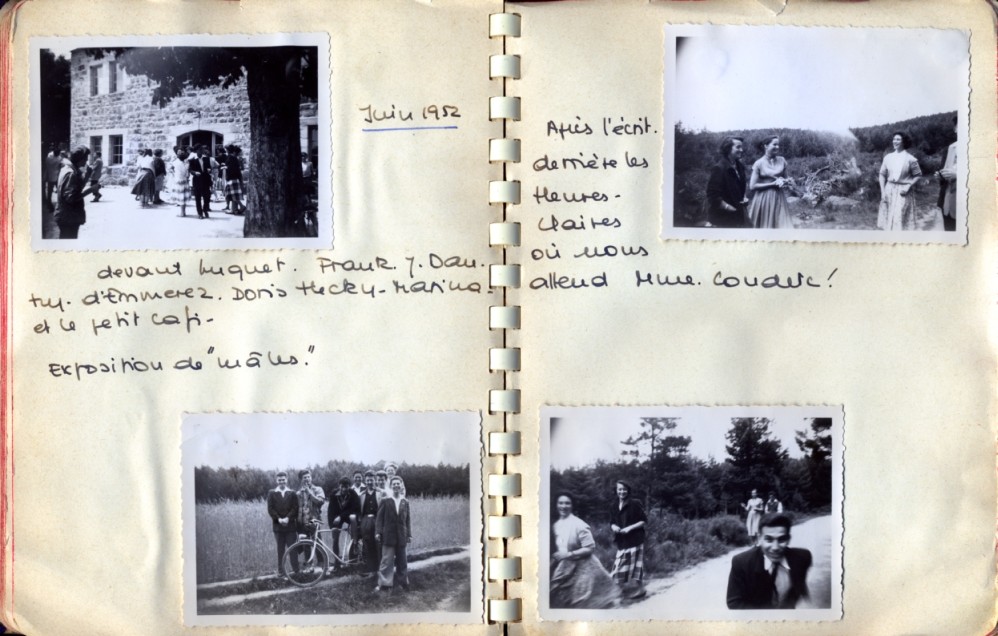 Juin 1952
devant Luquet. Frank. J. Dan.
thy. d'Emmerez. Doris Hecky-Marina-
et le petit Cafi-
Exposition de "mâles."
Après l'écrit.
derrière les
Heures-
Claires
où nous
attend Mme. Couderc!